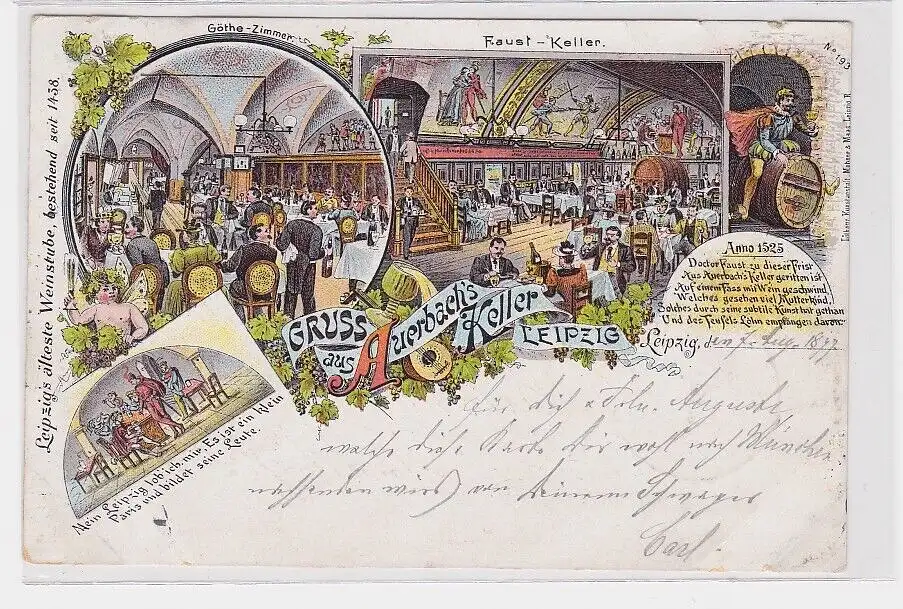 Göthe-Zimmer
Faust-Keller.
No 193
Leipzig's älteste Weinstube, bestehend seit 1438.
Anno 1525
Doctor Faust zu dieser Frist
Aus Auerbach's Keller geritten ist
Auf einem Fass mit Wein geschwind,
Welches gesehen viel Mutterkind,
Solches durch seine subtile Kunst hat gethan
Und des Teufels Lohn empfangen davon.
GRUSS
aus Auerbach's
Keller
LEIPZIG
Leipzig, den 7. Aug. 1897
Mein Leipzig lob ich mir, Es ist ein klein
Paris und bildet seine Leute.
für dich Auguste,
welche diese Karte dir wohl nach München
wird von deinem Schwager
Carl.